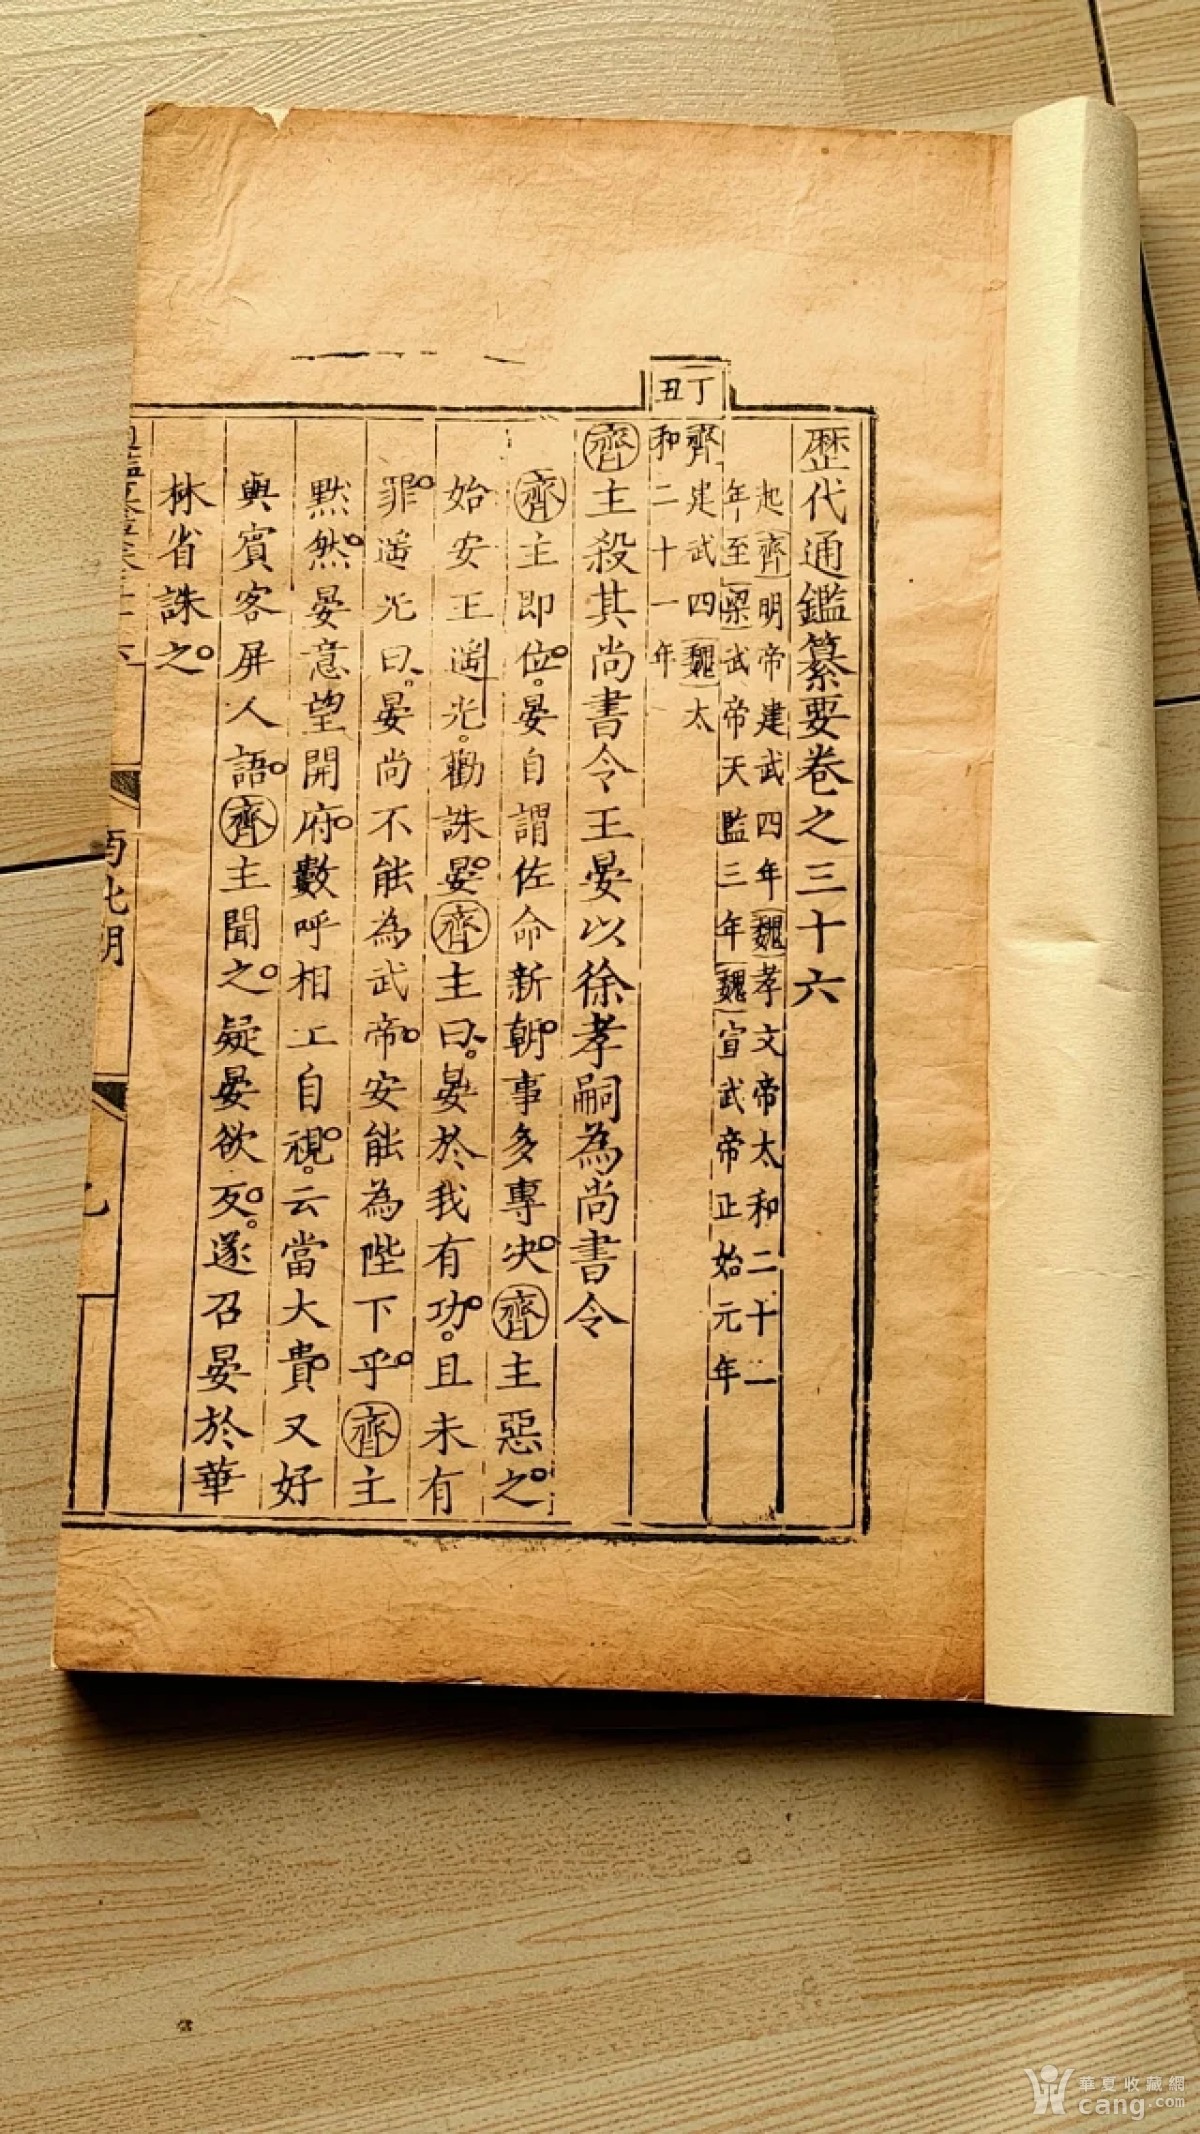 歷代通鑑纂要卷之三十六
起齊明帝建武四年魏孝文帝太和二十一
年至梁武帝天監三年魏宣武帝正始元年
丁丑
齊建武四魏太
和二十一年
齊主殺其尚書令王晏以徐孝嗣為尚書令
齊主即位。晏自謂佐命新朝。事多專決。齊主惡之。
始安王遥光。勸誅晏。齊主曰。晏於我有功。且未有
罪。遥光曰。晏尚不能為武帝。安能為陛下乎。齊主
默然。晏意望開府。數呼相工自視。云當大貴。又好
與賓客屏人語。齊主聞之。疑晏欲反。遂召晏於華
林省誅之。
華夏收藏網
cang.com